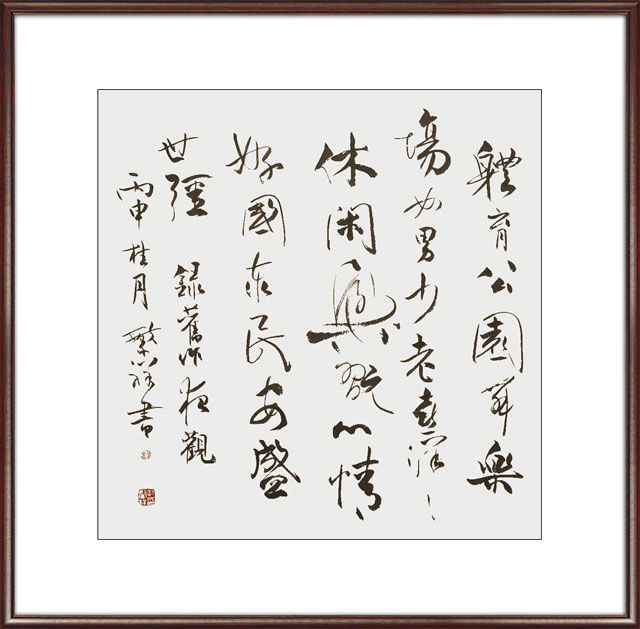 體育公園舞樂
場女男少老喜洋洋
休閑興心情
好國泰民安盛
世疆 錄舊作夜觀
丙申桂月 繁祥書